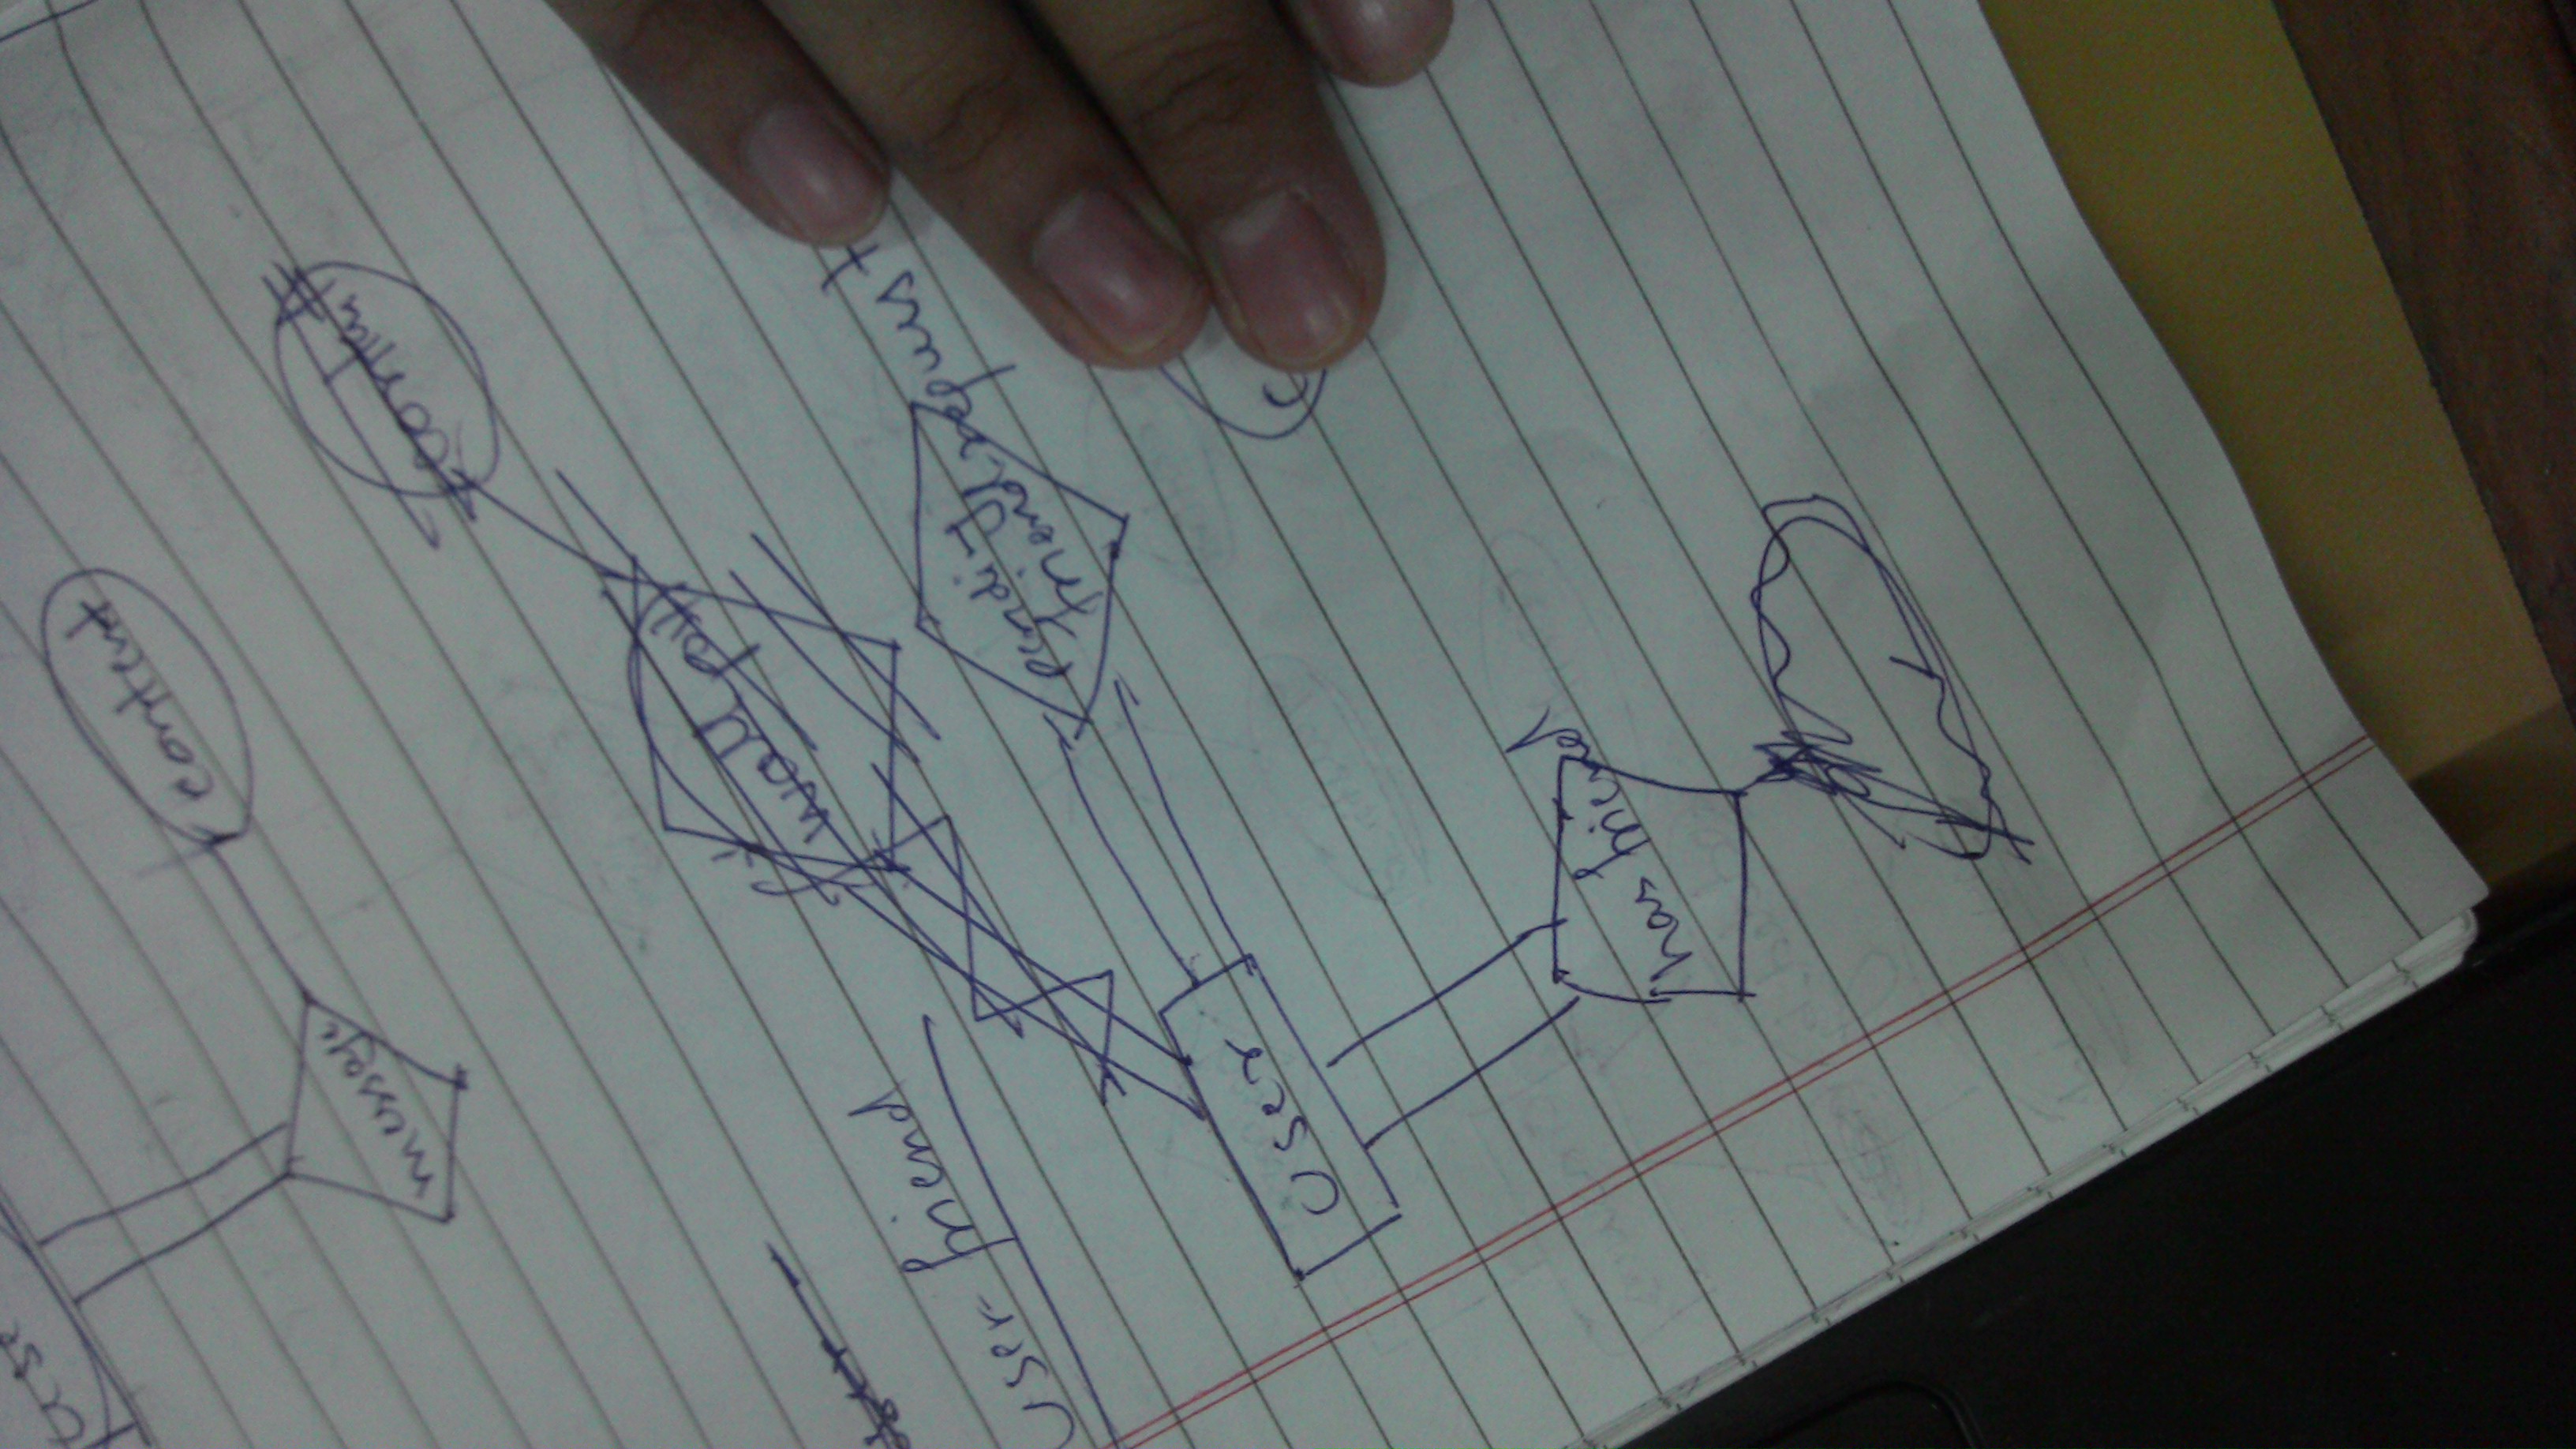 use
content
message
content
wall post
User friend
pending
friend request
User
has friend